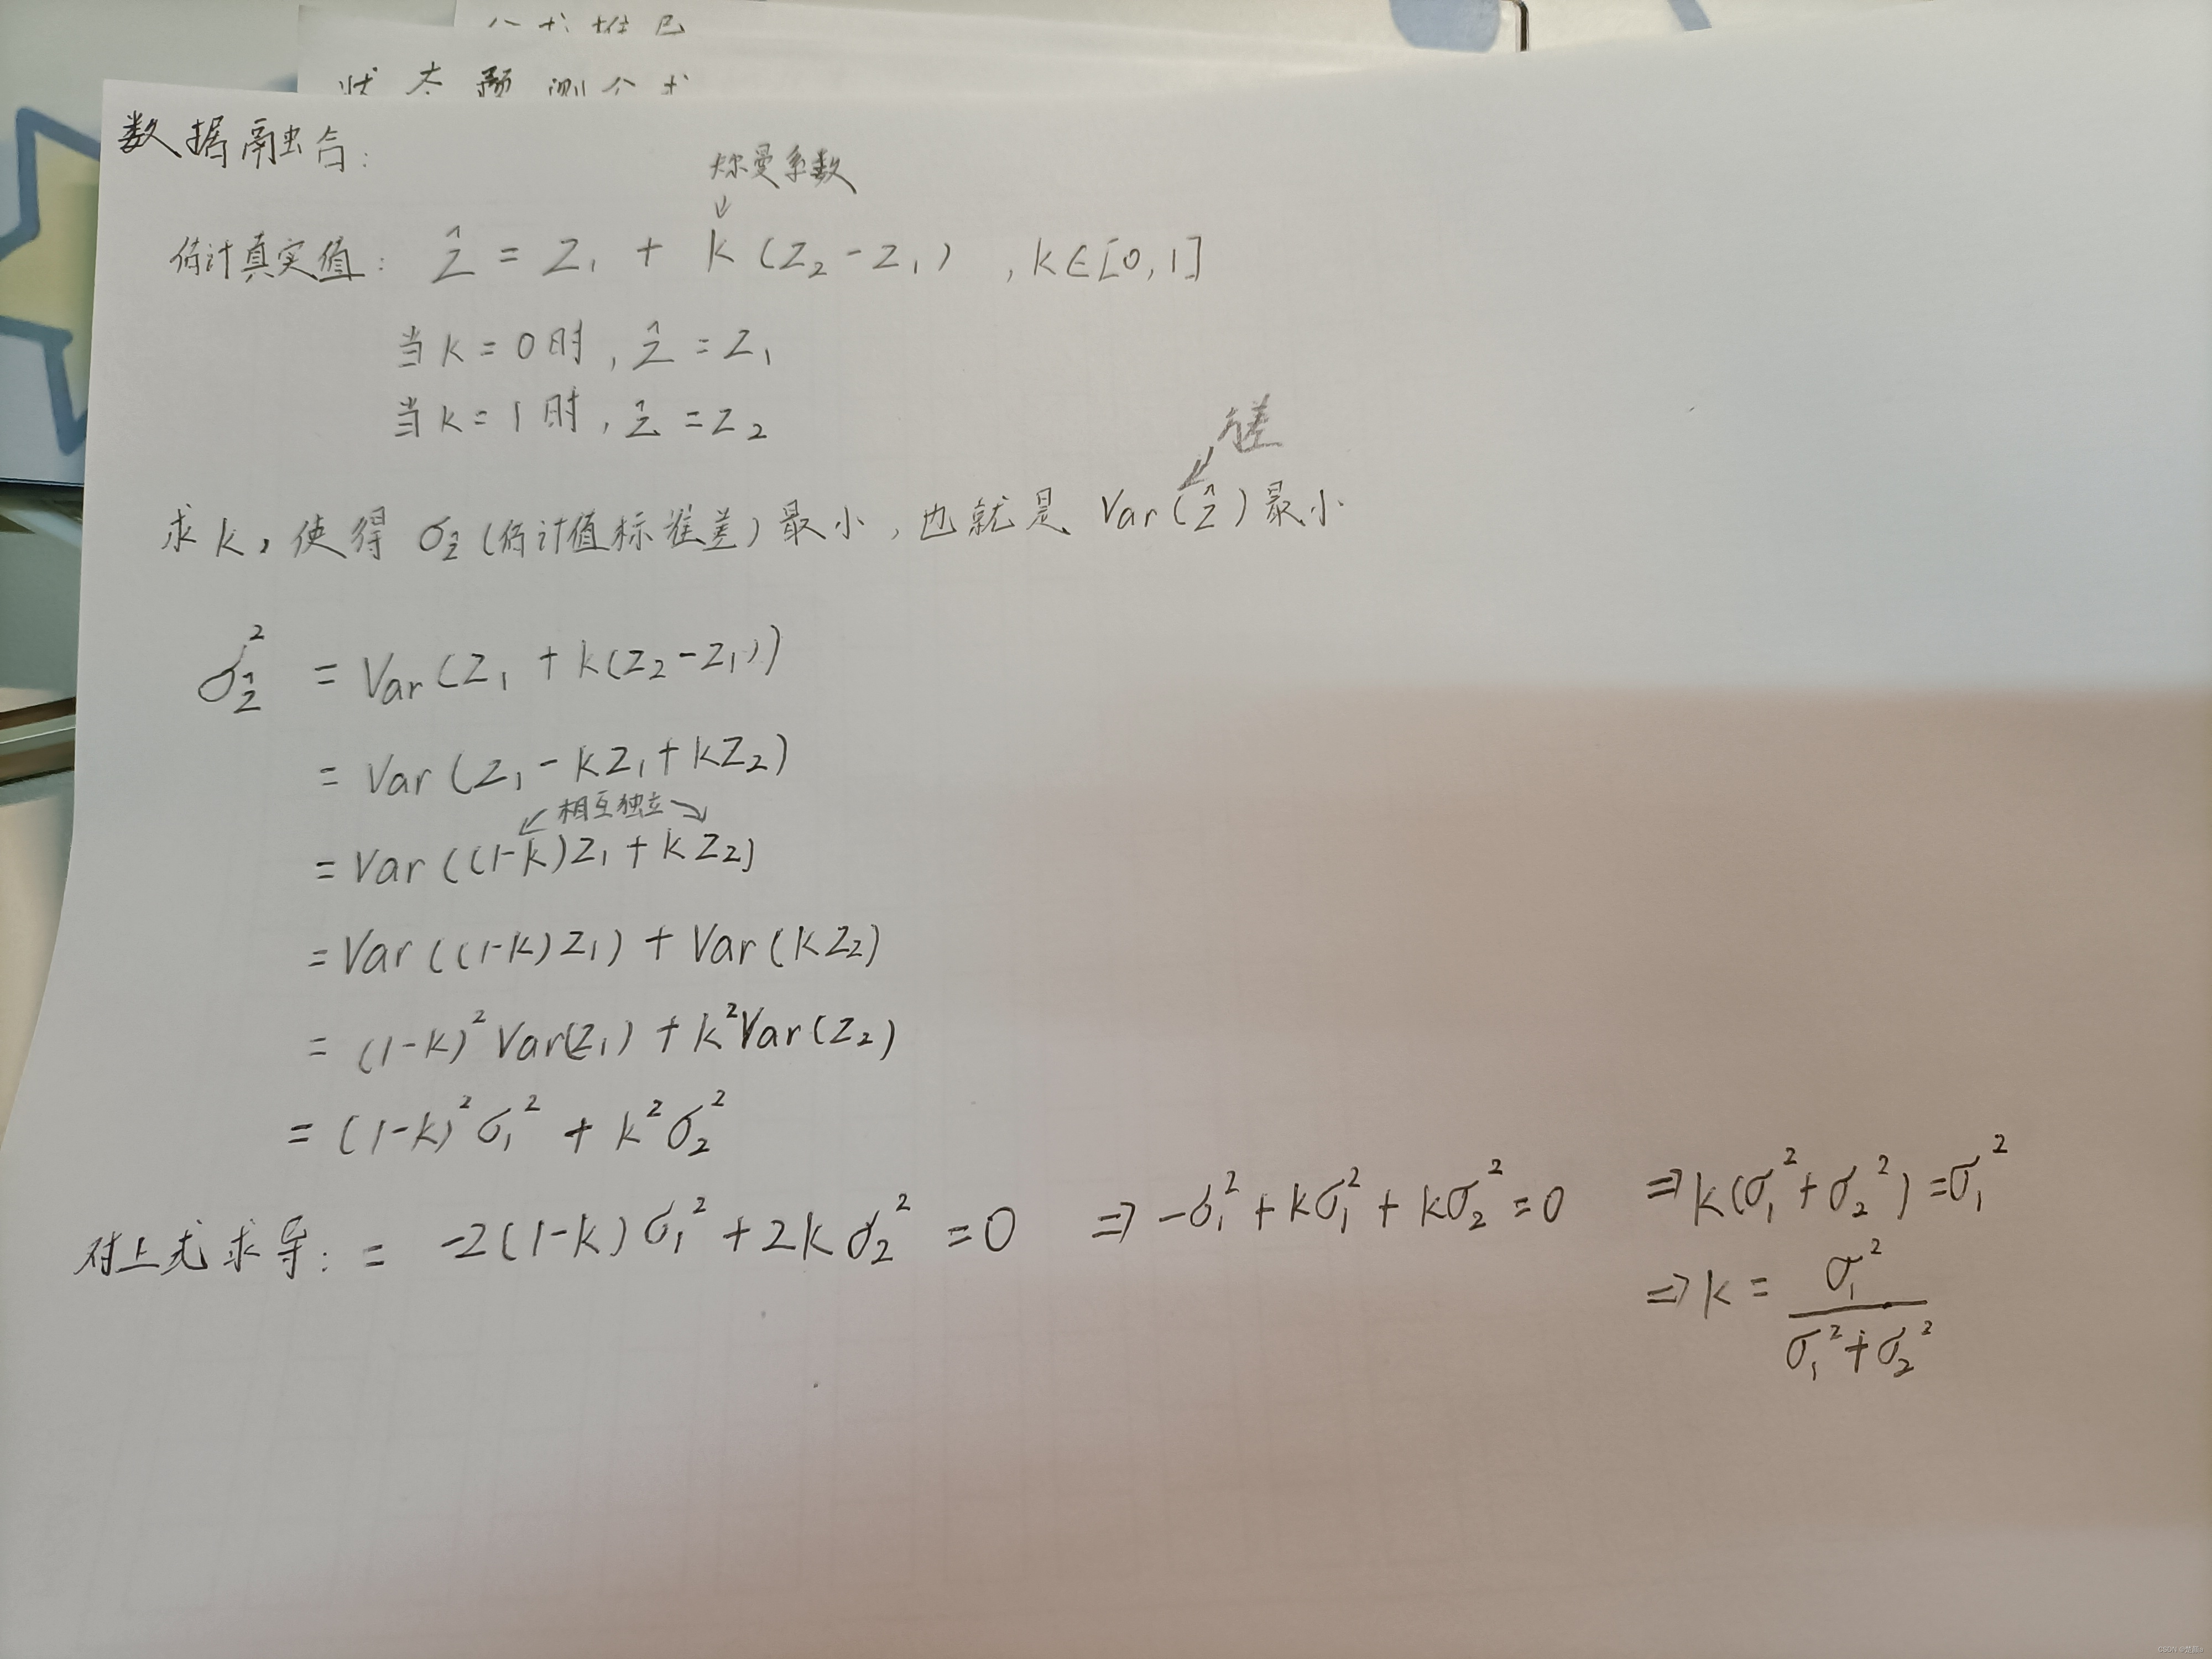 状态预测公式
数据融合:
卡尔曼系数
↓
估计真实值: ẑ = Z₁ + k(Z₂-Z₁) , k∈[0,1]
当k=0时, ẑ=Z₁
当k=1时, ẑ=Z₂
方差
求k, 使得 σẑ(估计值标准差)最小, 也就是 Var(ẑ)最小
σẑ² = Var(Z₁ + k(Z₂-Z₁))
= Var(Z₁-kZ₁+kZ₂)
↙相互独立↘
= Var((1-k)Z₁+kZ₂)
= Var((1-k)Z₁) + Var(kZ₂)
= (1-k)²Var(Z₁) + k²Var(Z₂)
= (1-k)²σ₁² + k²σ₂²
对上式求导: = -2(1-k)σ₁²+2kσ₂² =0 ⇒ -σ₁²+kσ₁²+kσ₂²=0 ⇒ k(σ₁²+σ₂²)=σ₁²
⇒ k = σ₁² / (σ₁²+σ₂²)